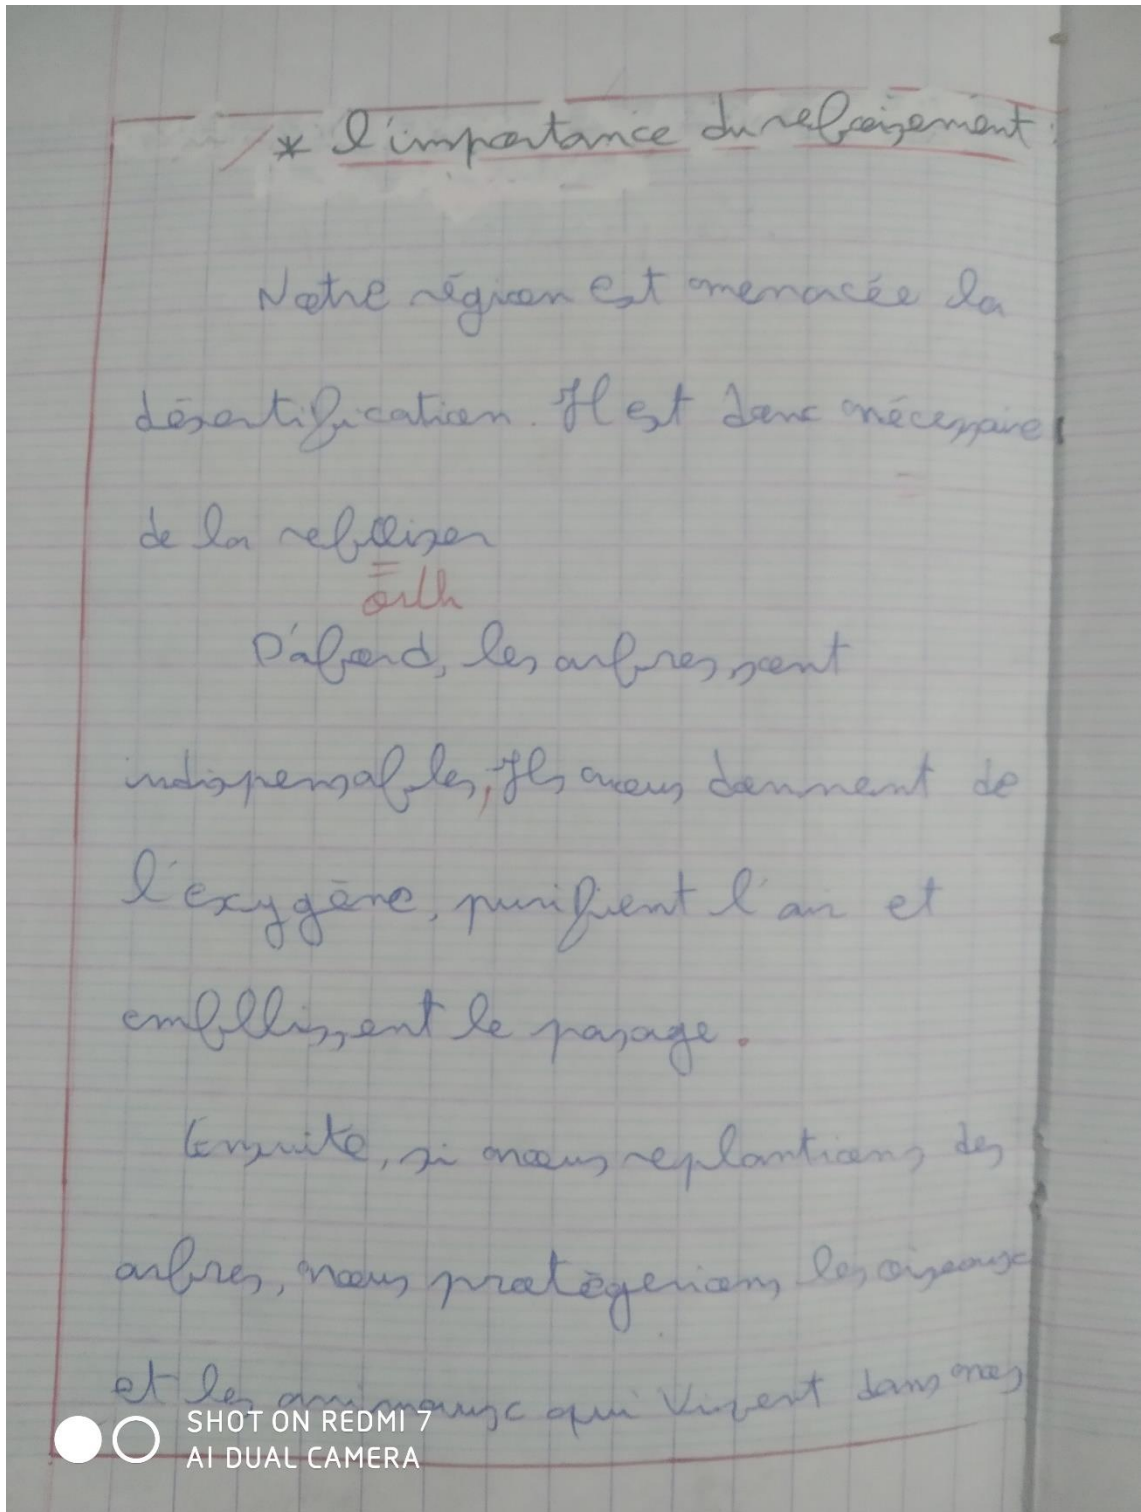 * l'importance du reboisement :
Notre région est menacée la
désertification. Il est donc nécessaire
de la reboiser
orth
D'abord, les arbres sont
indispensables, Ils nous donnent de
l'oxygène, purifient l'air et
embllissent le pasage.
Ensuite, si nous replantions des
arbres, nous protègerions les oiseaux
et les animaux qui vivent dans nos
SHOT ON REDMI 7
AI DUAL CAMERA